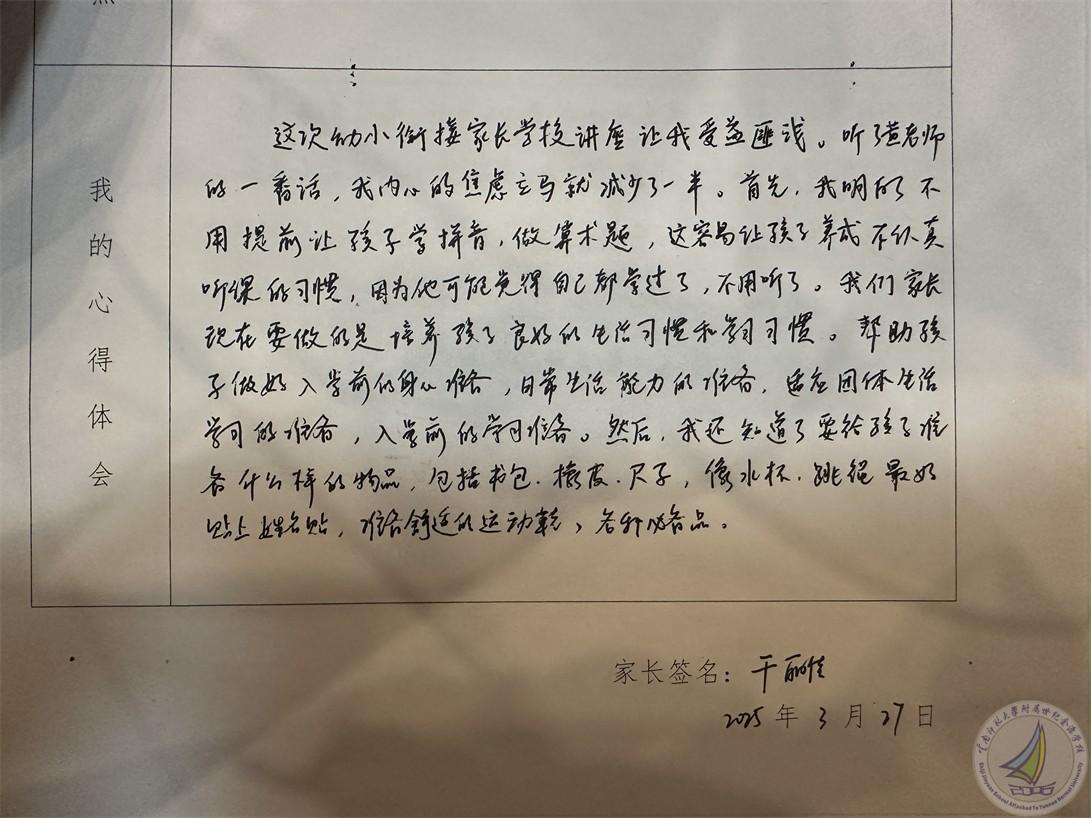 我的心得体会
这次幼小衔接家长学校讲座让我受益匪浅。听了黄老师
的一番话，我内心的焦虑立马就减少了一半。首先，我明白了不
用提前让孩子学拼音，做算术题，这容易让孩子养成不认真
听课的习惯，因为他可能觉得自己都学过了，不用听了。我们家长
现在要做的是培养孩子良好的生活习惯和学习习惯。帮助孩
子做好入学前的身心准备，日常生活能力的准备，适应团体生活
学习的准备，入学前的学习准备。然后，我还知道了要给孩子准
备什么样的物品，包括书包、橡皮、尺子，像水杯、跳绳最好
贴上姓名贴，准备舒适的运动鞋，各种必备品。
家长签名：干丽佳
2025年3月27日
云南师范大学附属世纪金源学校
Shiji Jinyuan School Attached To Yunnan Normal University